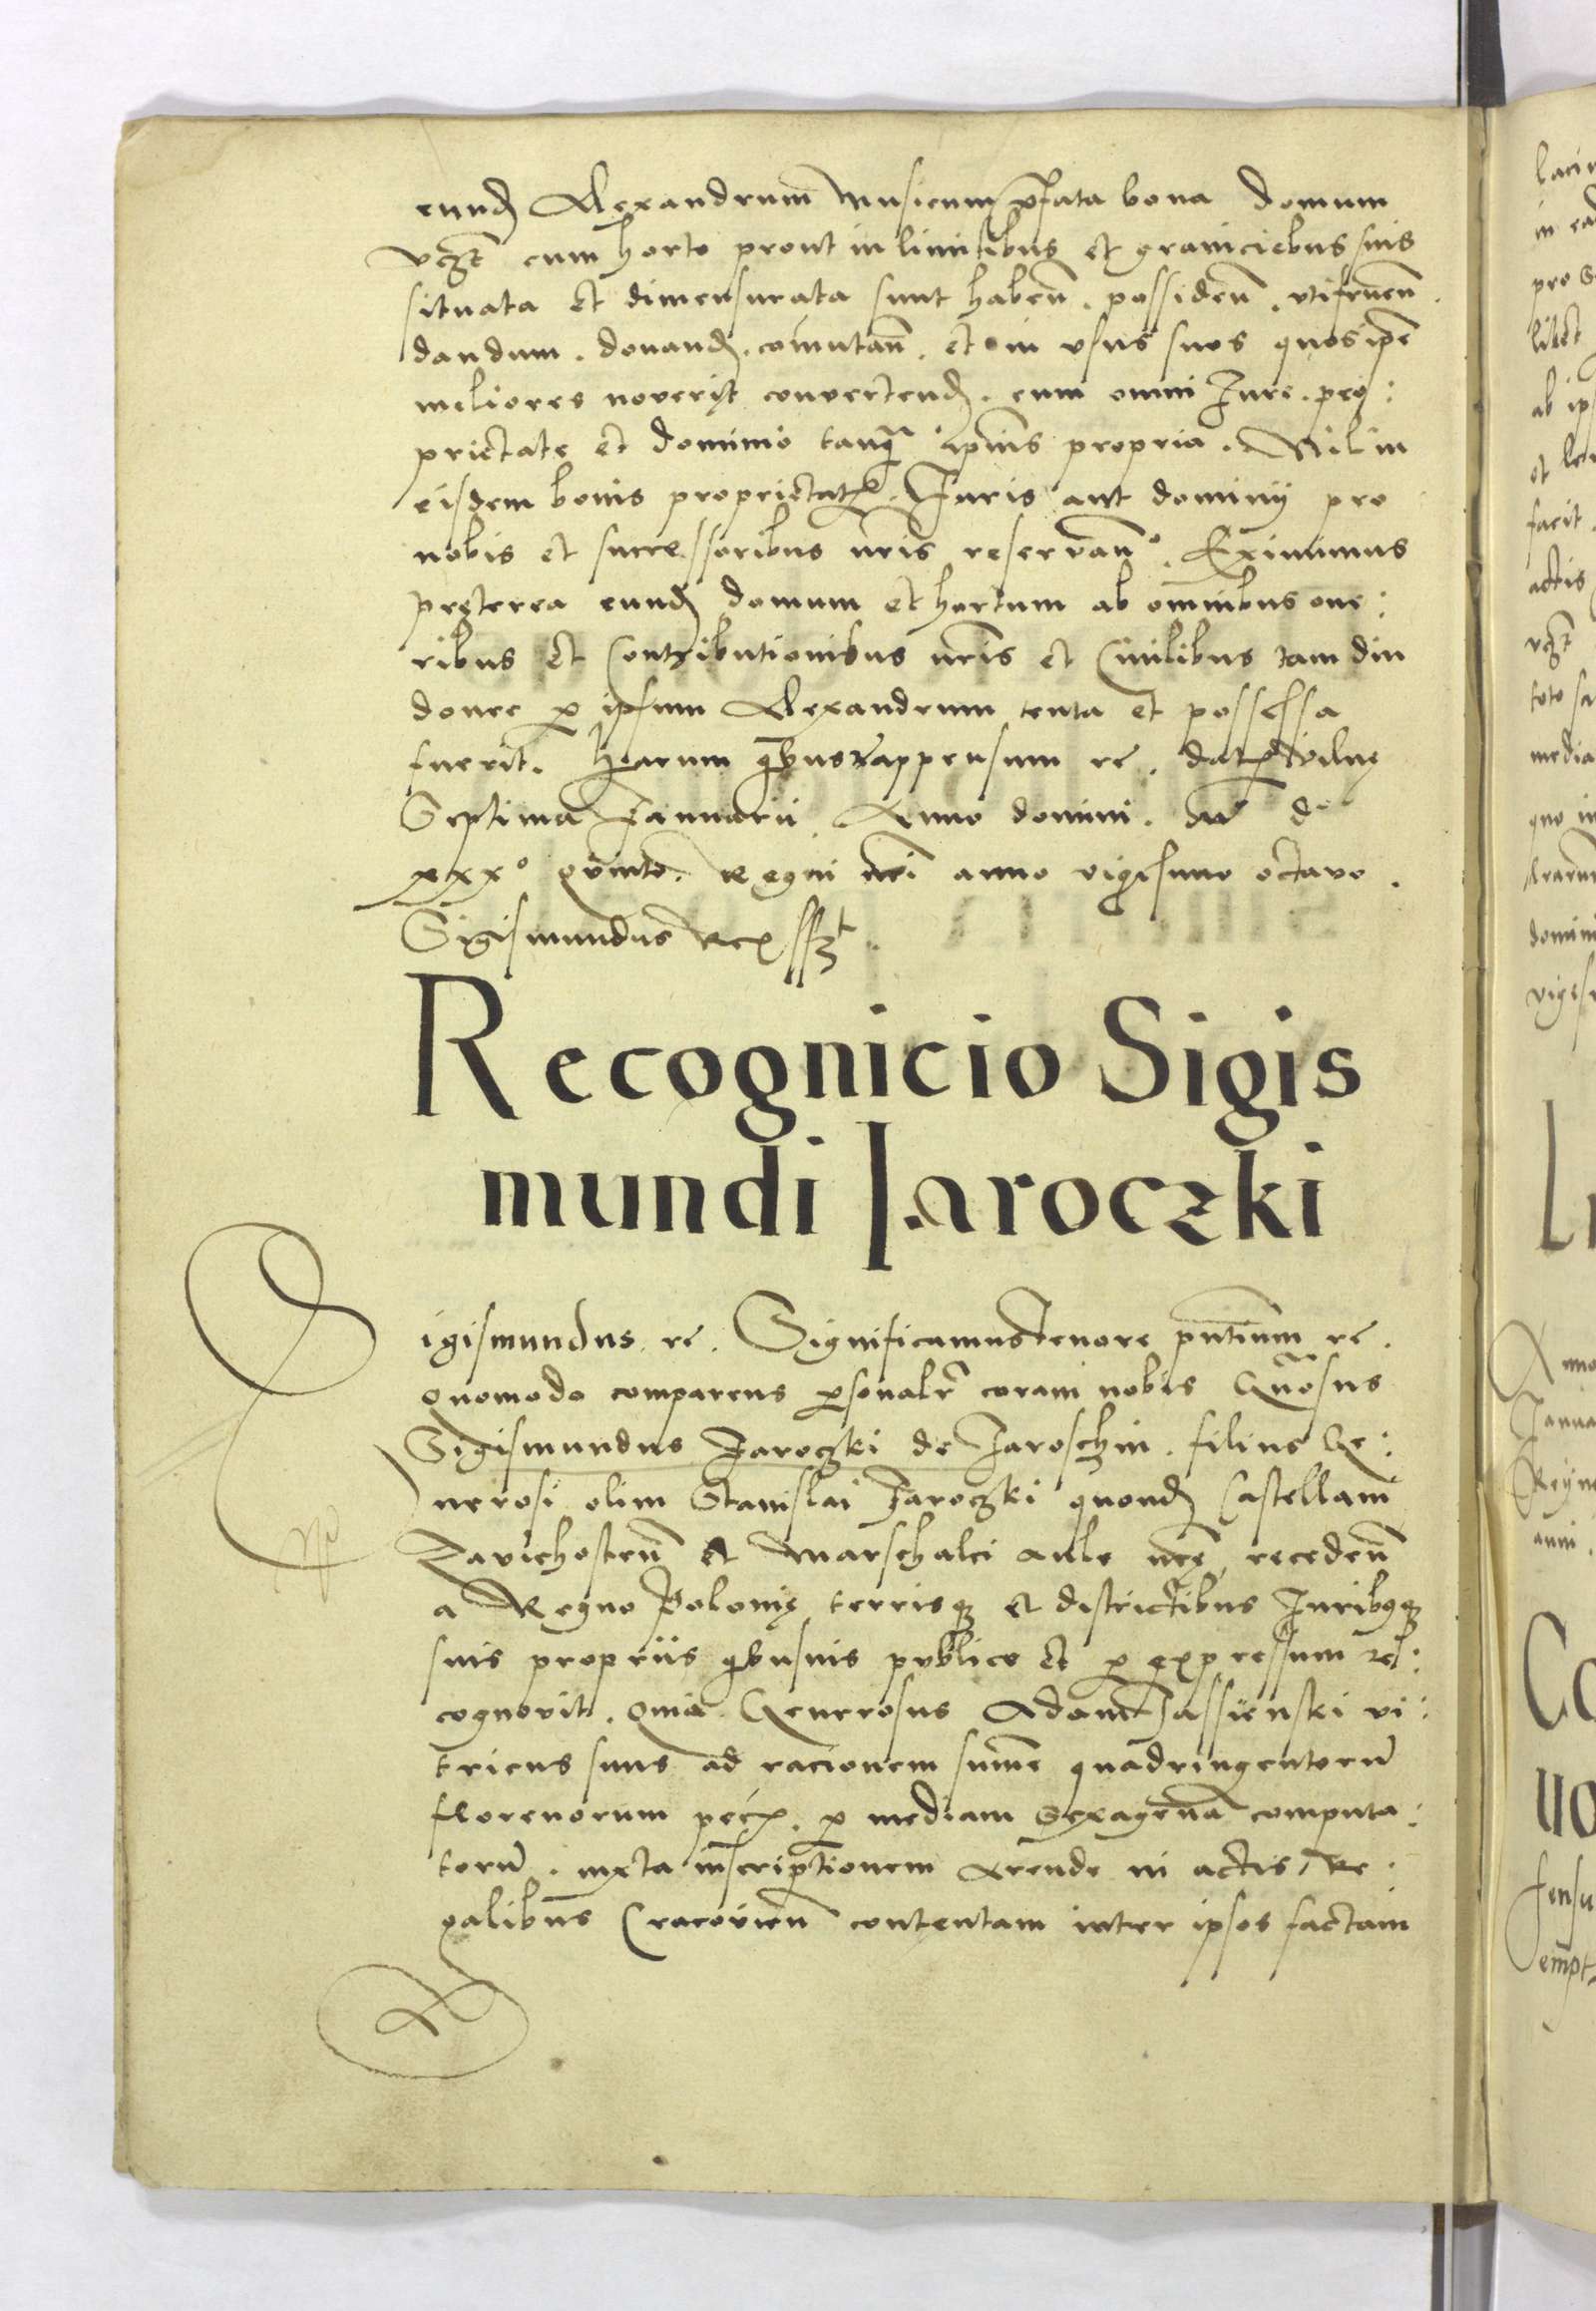 eund Alexandrum Musicum prefata bona domum
vczt cum horto prout in limitibus et graniciebus suis
situata et dimensurata sunt haben. possiden. vtifruen.
dandum. donand. comutan. et in vsus suos quos ipe
meliores noverit convertend. cum omni Iure. pro:
prietate et dominio tanq ipius propria. Nil in
eisdem bonis proprietatis. Iuris aut dominij pro
nobis et successoribus nris reservan. Eximimus
pręterea eund domum et hortum ab omnibus one:
ribus et Contributionibus nris et Civilibus tam diu
donec p ipsum Alexandrum tenta et possessa
fuerit. Harum qbus appensum rc. dat Wilnę
Septima Januarii. Anno domini. M d
xxx° quinto. Regni nri anno vigesimo octavo.
Sigismundus Rex sszt.
Recognicio Sigis
mundi Iaroczki
Sigismundus. rc. Significamus tenore pntium rc.
quomodo comparens psonalr coram nobis Gnosus
Sigismundus Jaroczki de Jaroschin. filius Ge:
nerosi olim Stanislai Jaroczki quond Castellani
Zavichosten et Marschalci aule nrę, receden
a Regno Polonię terrisq et districtibus Iuribqq
suis propriis qbusuis publice et p expressum re:
cognovit. quia Generosus Adam Jassienski vi:
tricus suus ad racionem sume quadringentoru
florenorum pec. p mediam Sexagena computa:
toru. iuxta inscriptionem Arende in actis Re:
galibus Cracovien contentam inter ipsos factam